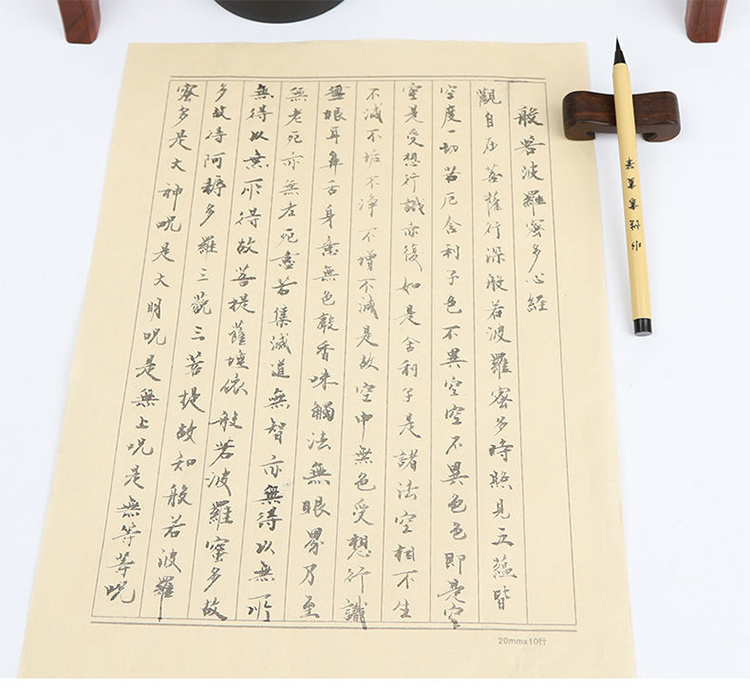 般若波羅蜜多心經
觀自在菩薩行深般若波羅蜜多時照見五蘊皆
空度一切苦厄舍利子色不異空空不異色色即是空
空是受想行識亦復如是舍利子是諸法空相不生
不滅不垢不淨不增不減是故空中無色受想行識
無眼耳鼻舌身意無色聲香味觸法無眼界乃至
無老死亦無老死盡苦集滅道無智亦無得以無所
無得以無所得故菩提薩埵依般若波羅蜜多故
多故得阿耨多羅三藐三菩提故知般若波羅
蜜多是大神呪是大明呪是無上呪是無等等呪
20mmx10行